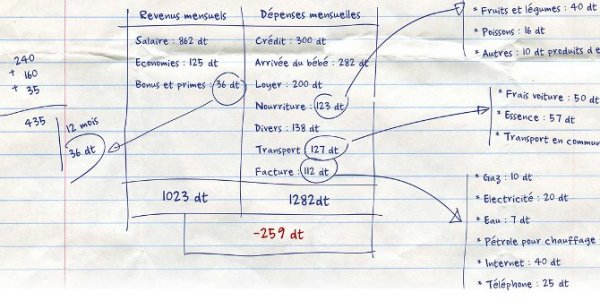 Revenus mensuels
Dépenses mensuelles
Salaire : 862 dt
Economies : 125 dt
Bonus et primes : 36 dt
Crédit : 300 dt
Arrivée du bébé : 282 dt
Loyer : 200 dt
Nourriture : 123 dt
Divers : 138 dt
Transport 127 dt
Facture : 112 dt
1023 dt
1282dt
-259 dt
240
+ 160
+ 35
435
12 mois
36 dt
* Fruits et légumes : 40 dt
* Poissons : 16 dt
* Autres : 10 dt produits d e
* Frais voiture : 50 dt
* Essence : 57 dt
* Transport en commun
* Gaz : 10 dt
* Electricité : 20 dt
* Eau : 7 dt
* Pétrole pour chauffage :
* Internet : 40 dt
* Téléphone : 25 dt